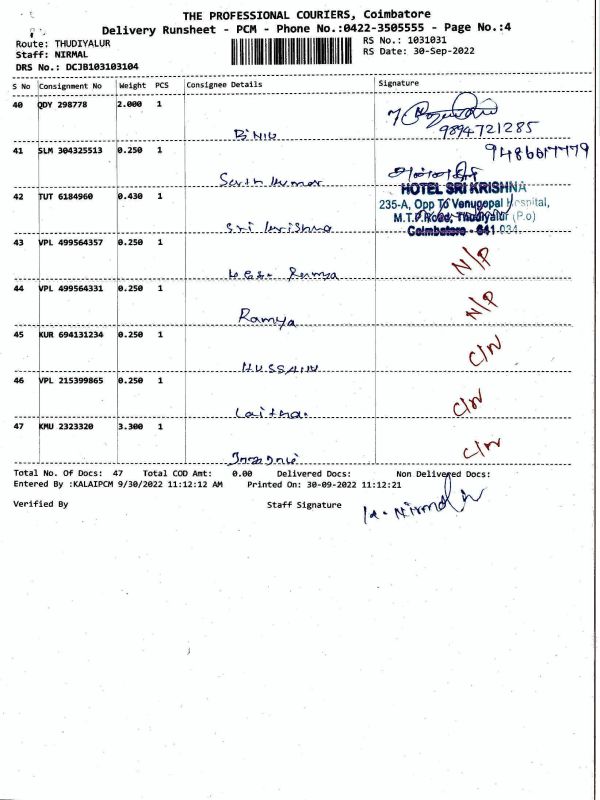 THE PROFESSIONAL COURIERS, Coimbatore
Delivery Runsheet - PCM - Phone No.:0422-3505555 - Page No.:4
Route: THUDIYALUR RS No.: 1031031
Staff: NIRMAL RS Date: 30-Sep-2022
DRS No.: DCJB103103104
S No Consignment No Weight PCS Consignee Details Signature
40 QDY 298778 2.000 1
Binu 9894721285
41 SLM 304325513 0.250 1 9486617779
42 TUT 6184960 0.430 1 HOTEL SRI KRISHNA
235-A, Opp To Venugopal Hospital,
M.T.P.Road, Thudiyalur (P.o)
Sri krishna Coimbatore - 641 034.
43 VPL 499564357 0.250 1 N/P
Ramya
44 VPL 499564331 0.250 1 N/P
Ramya
45 KUR 694131234 0.250 1 C/N
HUSSAIN
46 VPL 215399865 0.250 1 C/N
Laitha
47 KMU 2323320 3.300 1 C/N
Total No. Of Docs: 47 Total COD Amt: 0.00 Delivered Docs: Non Delivered Docs:
Entered By :KALAIPCM 9/30/2022 11:12:12 AM Printed On: 30-09-2022 11:12:21
Verified By Staff Signature K. Nirmal